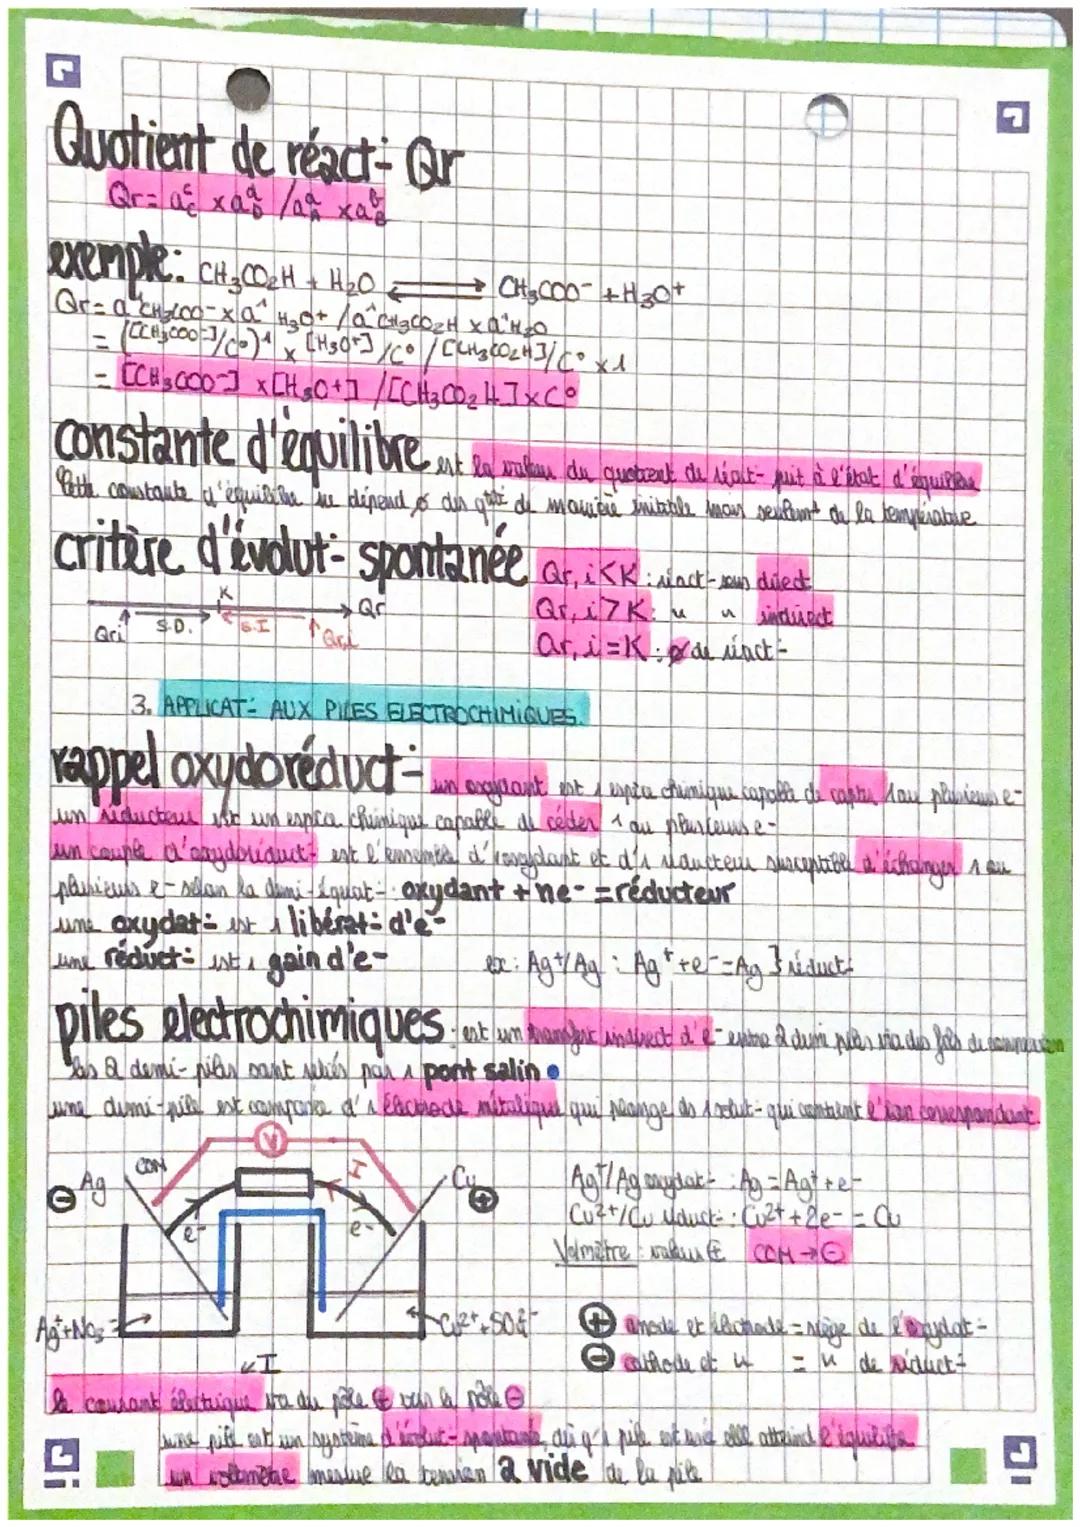 Quotient de réact- Qr
Qr = a_C^c x a_D^d / a_A^a x a_B^b
exemple: CH3CO2H + H2O ⇌ CH3COO- + H3O+
Qr = a^1 CH3COO- x a^1 H3O+ / a^1 CH3CO2H x a^1 H2O
= ([CH3COO-]/C°)^1 x [H3O+]/C° / [CH3CO2H]/C° x 1
= [CH3COO-] x [H3O+] / [CH3CO2H] x C°
constante d'équilibre est la valeur du quotient de réact- pris à l'état d'équilibre
Cette constante d'équilibre ne dépend ø des qtité de matière initiale mais seulemt de la température
critère d'évolut- spontanée Qr,i < K : réact- sens direct
K Qr Qr,i > K : " " indirect
Qri S.D. S.I Qr,i Qr,i = K : ø de réact-
3. APPLICAT- AUX PILES ELECTROCHIMIQUES.
rappel oxydoréduct- un oxydant est 1 espèce chimique capable de capter 1 ou plusieurs e-
un réducteur est un espèce chimique capable de céder 1 ou plusieurs e-
un couple d'oxydoréduct- est l'ensemble d'1 oxydant et d'1 réducteur susceptible d'échanger 1 ou
plusieurs e- selon la demi-équat- : oxydant + ne- = réducteur
une oxydat- est 1 libérat- d'e-
une réduct- est 1 gain d'e- ex : Ag+/Ag : Ag+ + e- = Ag } réduct-
piles electrochimiques : est un transfert indirect d'e- entre 2 demi piles via des fils de connexion
les 2 demi-piles sont reliés par 1 pont salin
une demi-pile est composée d'1 électrode métallique qui plonge ds 1 solut- qui contient l'ion correspondant.
V
COM I
⊖ Ag Cu ⊕ Ag+/Ag oxydat- : Ag = Ag+ + e-
e- e- Cu2+/Cu réduct- : Cu2+ + 2e- = Cu
Volmètre : valeur ⊕ COM → ⊖
Ag+ + NO3- Cu2+ + SO4 2- ⊕ anode et électrode = siège de l'oxydat-
⊖ cathode et " = " de réduct-
I
le courant électrique va du pôle ⊕ vers le pôle ⊖
une pile est un système d'évolut- spontanée, dès q'1 pile est usé elle atteind l'équilibre
un voltmètre mesure la tension à vide de la pile